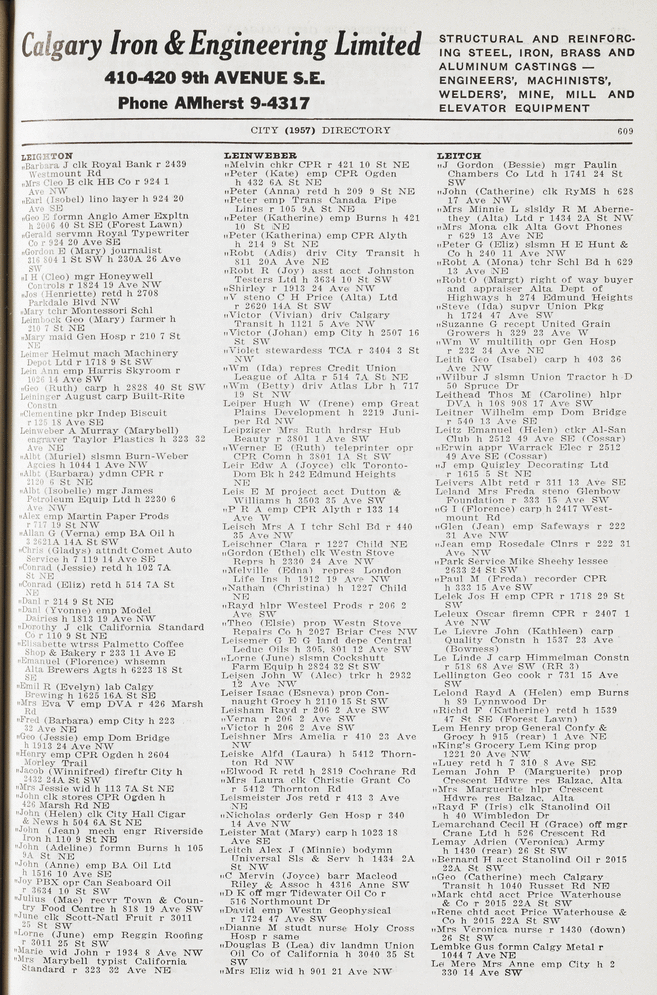 Calgary Iron & Engineering Limited
410-420 9th AVENUE S.E.
Phone AMherst 9-4317
STRUCTURAL AND REINFORC-
ING STEEL, IRON, BRASS AND
ALUMINUM CASTINGS —
ENGINEERS', MACHINISTS',
WELDERS', MINE, MILL AND
ELEVATOR EQUIPMENT
CITY (1957) DIRECTORY
609
LEIGHTON
"Barbara J clk Royal Bank r 2439
Westmount Rd
"Mrs Cleo B clk HB Co r 924 1
Ave NW
"Earl (Isobel) lino layer h 924 20
Ave SE
"Geo E formn Anglo Amer Expltn
h 2006 40 St SE (Forest Lawn)
"Gerald servmn Royal Typewriter
Co r 924 20 Ave SE
"Gordon E (Mary) journalist
316 804 1 St SW h 230A 26 Ave
SW
"I H (Cleo) mgr Honeywell
Controls r 1824 19 Ave NW
"Jos (Henriette) retd h 2708
Parkdale Blvd NW
"Mary tchr Montessori Schl
Leimbock Geo (Mary) farmer h
210 7 St NE
"Mary maid Gen Hosp r 210 7 St
NE
Leimer Helmut mach Machinery
Depot Ltd r 1718 9 St SW
Lein Ann emp Harris Skyroom r
1620 14 Ave SW
"Geo (Ruth) carp h 2828 40 St SW
Leininger August carp Built-Rite
Constn
"Clementine pkr Indep Biscuit
r 125 18 Ave SE
Leinweber A Murray (Marybell)
engraver Taylor Plastics h 323 32
Ave NE
"Albt (Muriel) slsmn Burn-Weber
Agcies h 1044 1 Ave NW
"Albt (Barbara) ydmn CPR r
2120 6 St NE
"Albt (Isobelle) mgr James
Petroleum Equip Ltd h 2230 6
Ave NW
"Alex emp Martin Paper Prods
r 717 19 St NW
"Allan G (Verna) emp BA Oil h
3 2621A 14 St SW
"Chris (Gladys) attndt Comet Auto
Service h 7 119 14 Ave SE
"Conrad (Jessie) retd h 102 7A
St NE
"Conrad (Eliz) retd h 514 7A St
NE
"Danl r 214 9 St NE
"Danl (Yvonne) emp Model
Dairies h 1813 19 Ave NW
"Dorothy J clk California Standard
Co r 110 9 St NE
"Elisabette wtrss Palmetto Coffee
Shop & Bakery r 233 11 Ave E
"Emanuel (Florence) whsemn
Alta Brewers Agts h 6223 18 St
SE
"Emil R (Evelyn) lab Calgy
Brewing h 1625 16A St SE
"Mrs Eva V emp DVA r 426 Marsh
Rd
"Fred (Barbara) emp City h 223
32 Ave NE
"Geo (Jessie) emp Dom Bridge
h 1913 24 Ave NW
"Henry emp CPR Ogden h 2604
Morley Trail
"Jacob (Winnifred) fireftr City h
2432 24A St SW
"Mrs Jessie wid h 113 7A St NE
"John clk stores CPR Ogden h
426 Marsh Rd NE
"John (Helen) clk City Hall Cigar
& News h 504 6A St NE
"John (Jean) mech engr Riverside
Iron h 110 9 St NE
"John (Adeline) formn Burns h 105
9A St NE
"John (Anne) emp BA Oil Ltd
h 1516 10 Ave SE
"Joy PBX opr Can Seaboard Oil
r 3634 10 St SW
"Julius (Mae) recvr Town & Coun-
try Food Centre h 818 19 Ave SW
"June clk Scott-Natl Fruit r 3011
25 St SW
"Lorne (June) emp Reggin Roofing
r 3011 25 St SW
"Marie wid John r 1934 8 Ave NW
"Mrs Marybell typist California
Standard r 323 32 Ave NE
LEINWEBER
"Melvin chkr CPR r 421 10 St NE
"Peter (Kate) emp CPR Ogden
h 432 6A St NE
"Peter (Anna) retd h 209 9 St NE
"Peter emp Trans Canada Pipe
Lines r 105 9A St NE
"Peter (Katherine) emp Burns h 421
10 St NE
"Peter (Katherina) emp CPR Alyth
h 214 9 St NE
"Robt (Adis) driv City Transit h
811 20A Ave NE
"Robt R (Joy) asst acct Johnston
Testers Ltd h 3634 10 St SW
"Shirley r 1913 24 Ave NW
"V steno C H Price (Alta) Ltd
r 2620 14A St SW
"Victor (Vivian) driv Calgary
Transit h 1121 5 Ave NW
"Victor (Johan) emp City h 2507 16
St SW
"Violet stewardess TCA r 3404 3 St
NW
"Wm (Ida) repres Credit Union
League of Alta r 514 7A St NE
"Wm (Betty) driv Atlas Lbr h 717
19 St NW
Leiper Hugh W (Irene) emp Great
Plains Development h 2219 Juni-
per Rd NW
Leipziger Mrs Ruth hrdrsr Hub
Beauty r 3801 1 Ave SW
"Werner E (Ruth) teleprinter opr
CPR Comn h 3801 1A St SW
Leir Edw A (Joyce) clk Toronto-
Dom Bk h 242 Edmund Heights
NE
Leis E M project acct Dutton &
Williams h 3503 35 Ave SW
"P R A emp CPR Alyth r 133 14
Ave W
Leisch Mrs A I tchr Schl Bd r 440
35 Ave NW
Leischner Clara r 1227 Child NE
"Gordon (Ethel) clk Westn Stove
Reprs h 2330 24 Ave NW
"Melville (Edna) repres London
Life Ins h 1912 19 Ave NW
"Nathan (Christina) h 1227 Child
NE
"Rayd hlpr Westeel Prods r 206 2
Ave SW
"Theo (Elsie) prop Westn Stove
Repairs Co h 2027 Briar Cres NW
Leisemer G E G land depe Central
Leduc Oils h 305, 801 12 Ave SW
"Lorne (June) slsmn Cockshutt
Farm Equip h 2824 32 St SW
Leisen John W (Alec) trkr h 2932
12 Ave NW
Leiser Isaac (Esneva) prop Con-
naught Grocy h 2110 15 St SW
Leisham Rayd r 206 2 Ave SW
"Verna r 206 2 Ave SW
"Victor r 206 2 Ave SW
Leishner Mrs Amelia r 410 23 Ave
NW
Leiske Alfd (Laura) h 5412 Thorn-
ton Rd NW
"Elwood R retd h 2819 Cochrane Rd
"Mrs Laura clk Christie Grant Co
r 5412 Thornton Rd
Leismeister Jos retd r 413 3 Ave
NE
"Nicholas orderly Gen Hosp r 340
14 Ave NW
Leister Mat (Mary) carp h 1023 18
Ave SE
Leitch Alex J (Minnie) bodymn
Universal Sls & Serv h 1434 2A
St NW
"C Mervin (Joyce) barr Macleod
Riley & Assoc h 4316 Anne SW
"D K off mgr Tidewater Oil Co r
516 Northmount Dr
"David emp Westn Geophysical
r 1724 47 Ave SW
"Dianne M studt nurse Holy Cross
Hosp r same
"Douglas B (Lea) div landmn Union
Oil Co of California h 3040 35 St
SW
"Mrs Eliz wid h 901 21 Ave NW
LEITCH
"J Gordon (Bessie) mgr Paulin
Chambers Co Ltd h 1741 24 St
SW
"John (Catherine) clk RyMS h 628
17 Ave NW
"Mrs Minnie L slsldy R M Aberne-
they (Alta) Ltd r 1434 2A St NW
"Mrs Mona clk Alta Govt Phones
r 629 13 Ave NE
"Peter G (Eliz) slsmn H E Hunt &
Co h 240 11 Ave NW
"Robt A (Mona) tchr Schl Bd h 629
13 Ave NE
"Robt O (Margt) right of way buyer
and appraiser Alta Dept of
Highways h 274 Edmund Heights
"Steve (Ida) supvr Union Pkg
h 1724 47 Ave SW
"Suzanne G recept United Grain
Growers h 329 23 Ave W
"Wm W multilith opr Gen Hosp
r 232 34 Ave NE
Leith Geo (Isabel) carp h 403 36
Ave NW
"Wilbur J slsmn Union Tractor h D
50 Spruce Dr
Leithead Thos M (Caroline) hlpr
DVA h 108 908 17 Ave SW
Leitner Wilhelm emp Dom Bridge
r 540 13 Ave SE
Leitz Emanuel (Helen) ctkr Al-San
Club h 2512 49 Ave SE (Cossar)
"Erwin appr Warrack Elec r 2512
49 Ave SE (Cossar)
"J emp Quigley Decorating Ltd
r 1615 5 St NE
Leivers Albt retd r 311 13 Ave SE
Leland Mrs Freda steno Glenbow
Foundation r 333 15 Ave SW
"G I (Florence) carp h 2417 West-
mount Rd
"Glen (Jean) emp Safeways r 222
31 Ave NW
"Jean emp Rosedale Clnrs r 222 31
Ave NW
"Park Service Mike Sheehy lessee
2633 24 St SW
"Paul M (Freda) recorder CPR
h 333 15 Ave SW
Lelek Jos H emp CPR r 1718 29 St
SW
Leleux Oscar firemn CPR r 2407 1
Ave NW
Le Lievre John (Kathleen) carp
Quality Constn h 1537 23 Ave
(Bowness)
Le Linde J carp Himmelman Constn
r 518 68 Ave SW (RR 3)
Lellington Geo cook r 731 15 Ave
SW
Lelond Rayd A (Helen) emp Burns
h 89 Lynnwood Dr
"Richd F (Katherine) retd h 1539
47 St SE (Forest Lawn)
Lem Henry prop General Confy &
Grocy h 915 (rear) 1 Ave NE
"King's Grocery Lem King prop
1221 20 Ave NW
"Luey retd h 7 310 8 Ave SE
Leman John F (Marguerite) prop
Crescent Hdwre res Balzac, Alta
"Mrs Marguerite hlpr Crescent
Hdwre res Balzac, Alta
"Rayd F (Iris) clk Stanolind Oil
h 40 Wimbledon Dr
Lemarchand Cecil H (Grace) off mgr
Crane Ltd h 526 Crescent Rd
Lemay Adrien (Veronica) Army
h 1430 (rear) 26 St SW
"Bernard H acct Stanolind Oil r 2015
22A St SW
"Geo (Catherine) mech Calgary
Transit h 1040 Russet Rd NE
"Mark chtd acct Price Waterhouse
& Co r 2015 22A St SW
"Rene chtd acct Price Waterhouse &
Co h 2015 22A St SW
"Mrs Veronica nurse r 1430 (down)
26 St SW
Lembke Gus formn Calgy Metal r
1044 7 Ave NE
Le Mere Mrs Anne emp City h 2
330 14 Ave SW